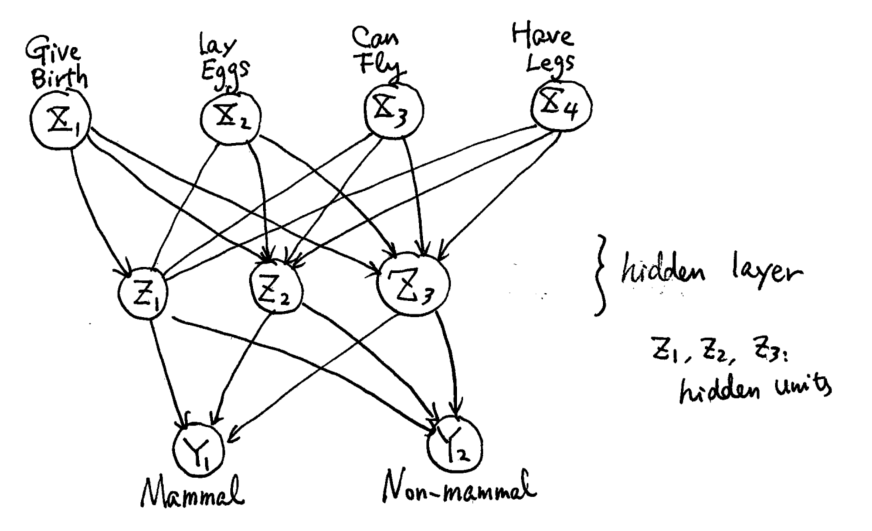 Give
Birth
Lay
Eggs
Can
Fly
Have
Legs
X1
X2
X3
X4
Z1
Z2
Z3
} hidden layer
Z1, Z2, Z3:
hidden units
Y1
Y2
Mammal
Non-mammal